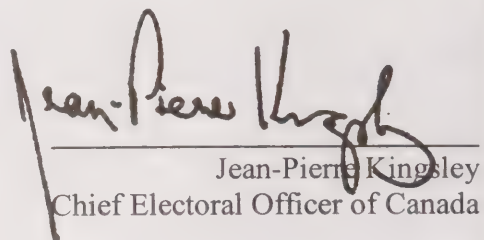 Jean-Pierre Kingsley
Jean-Pierre Kingsley
Chief Electoral Officer of Canada